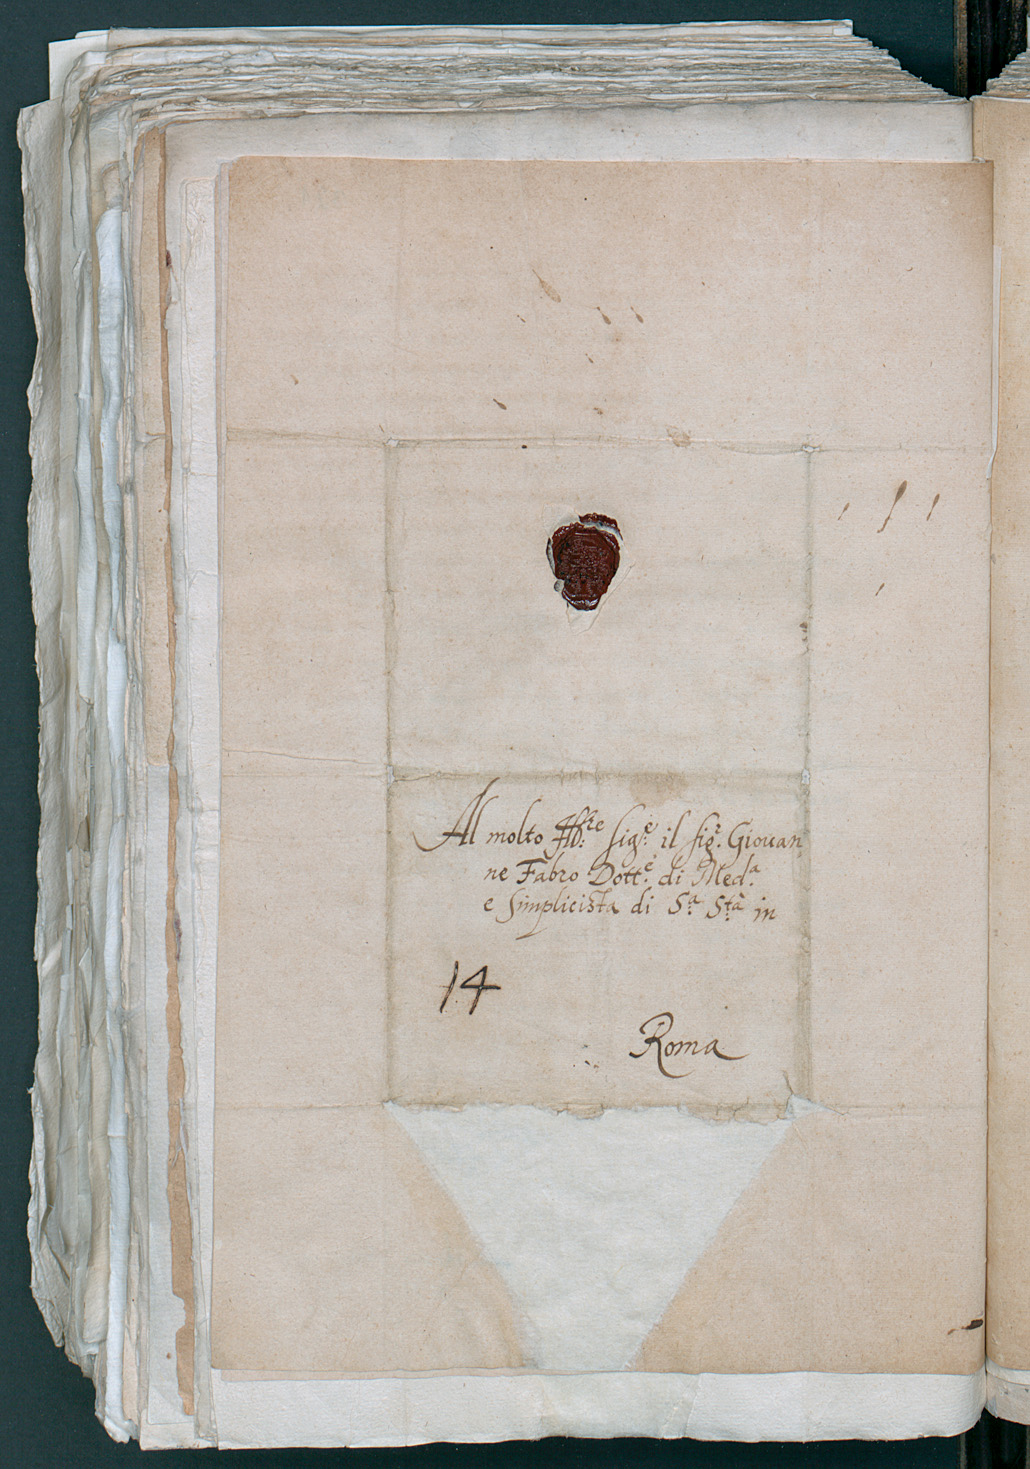 Al molto Ill:re Sig:re il sig:r Giouan
ne Fabro Dott:e di Med:a
e Simplicista di S:a S:tà in
14
Roma